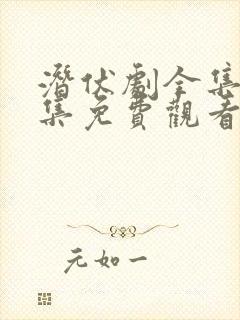 潛伏劇全集
集免費觀看
元如一